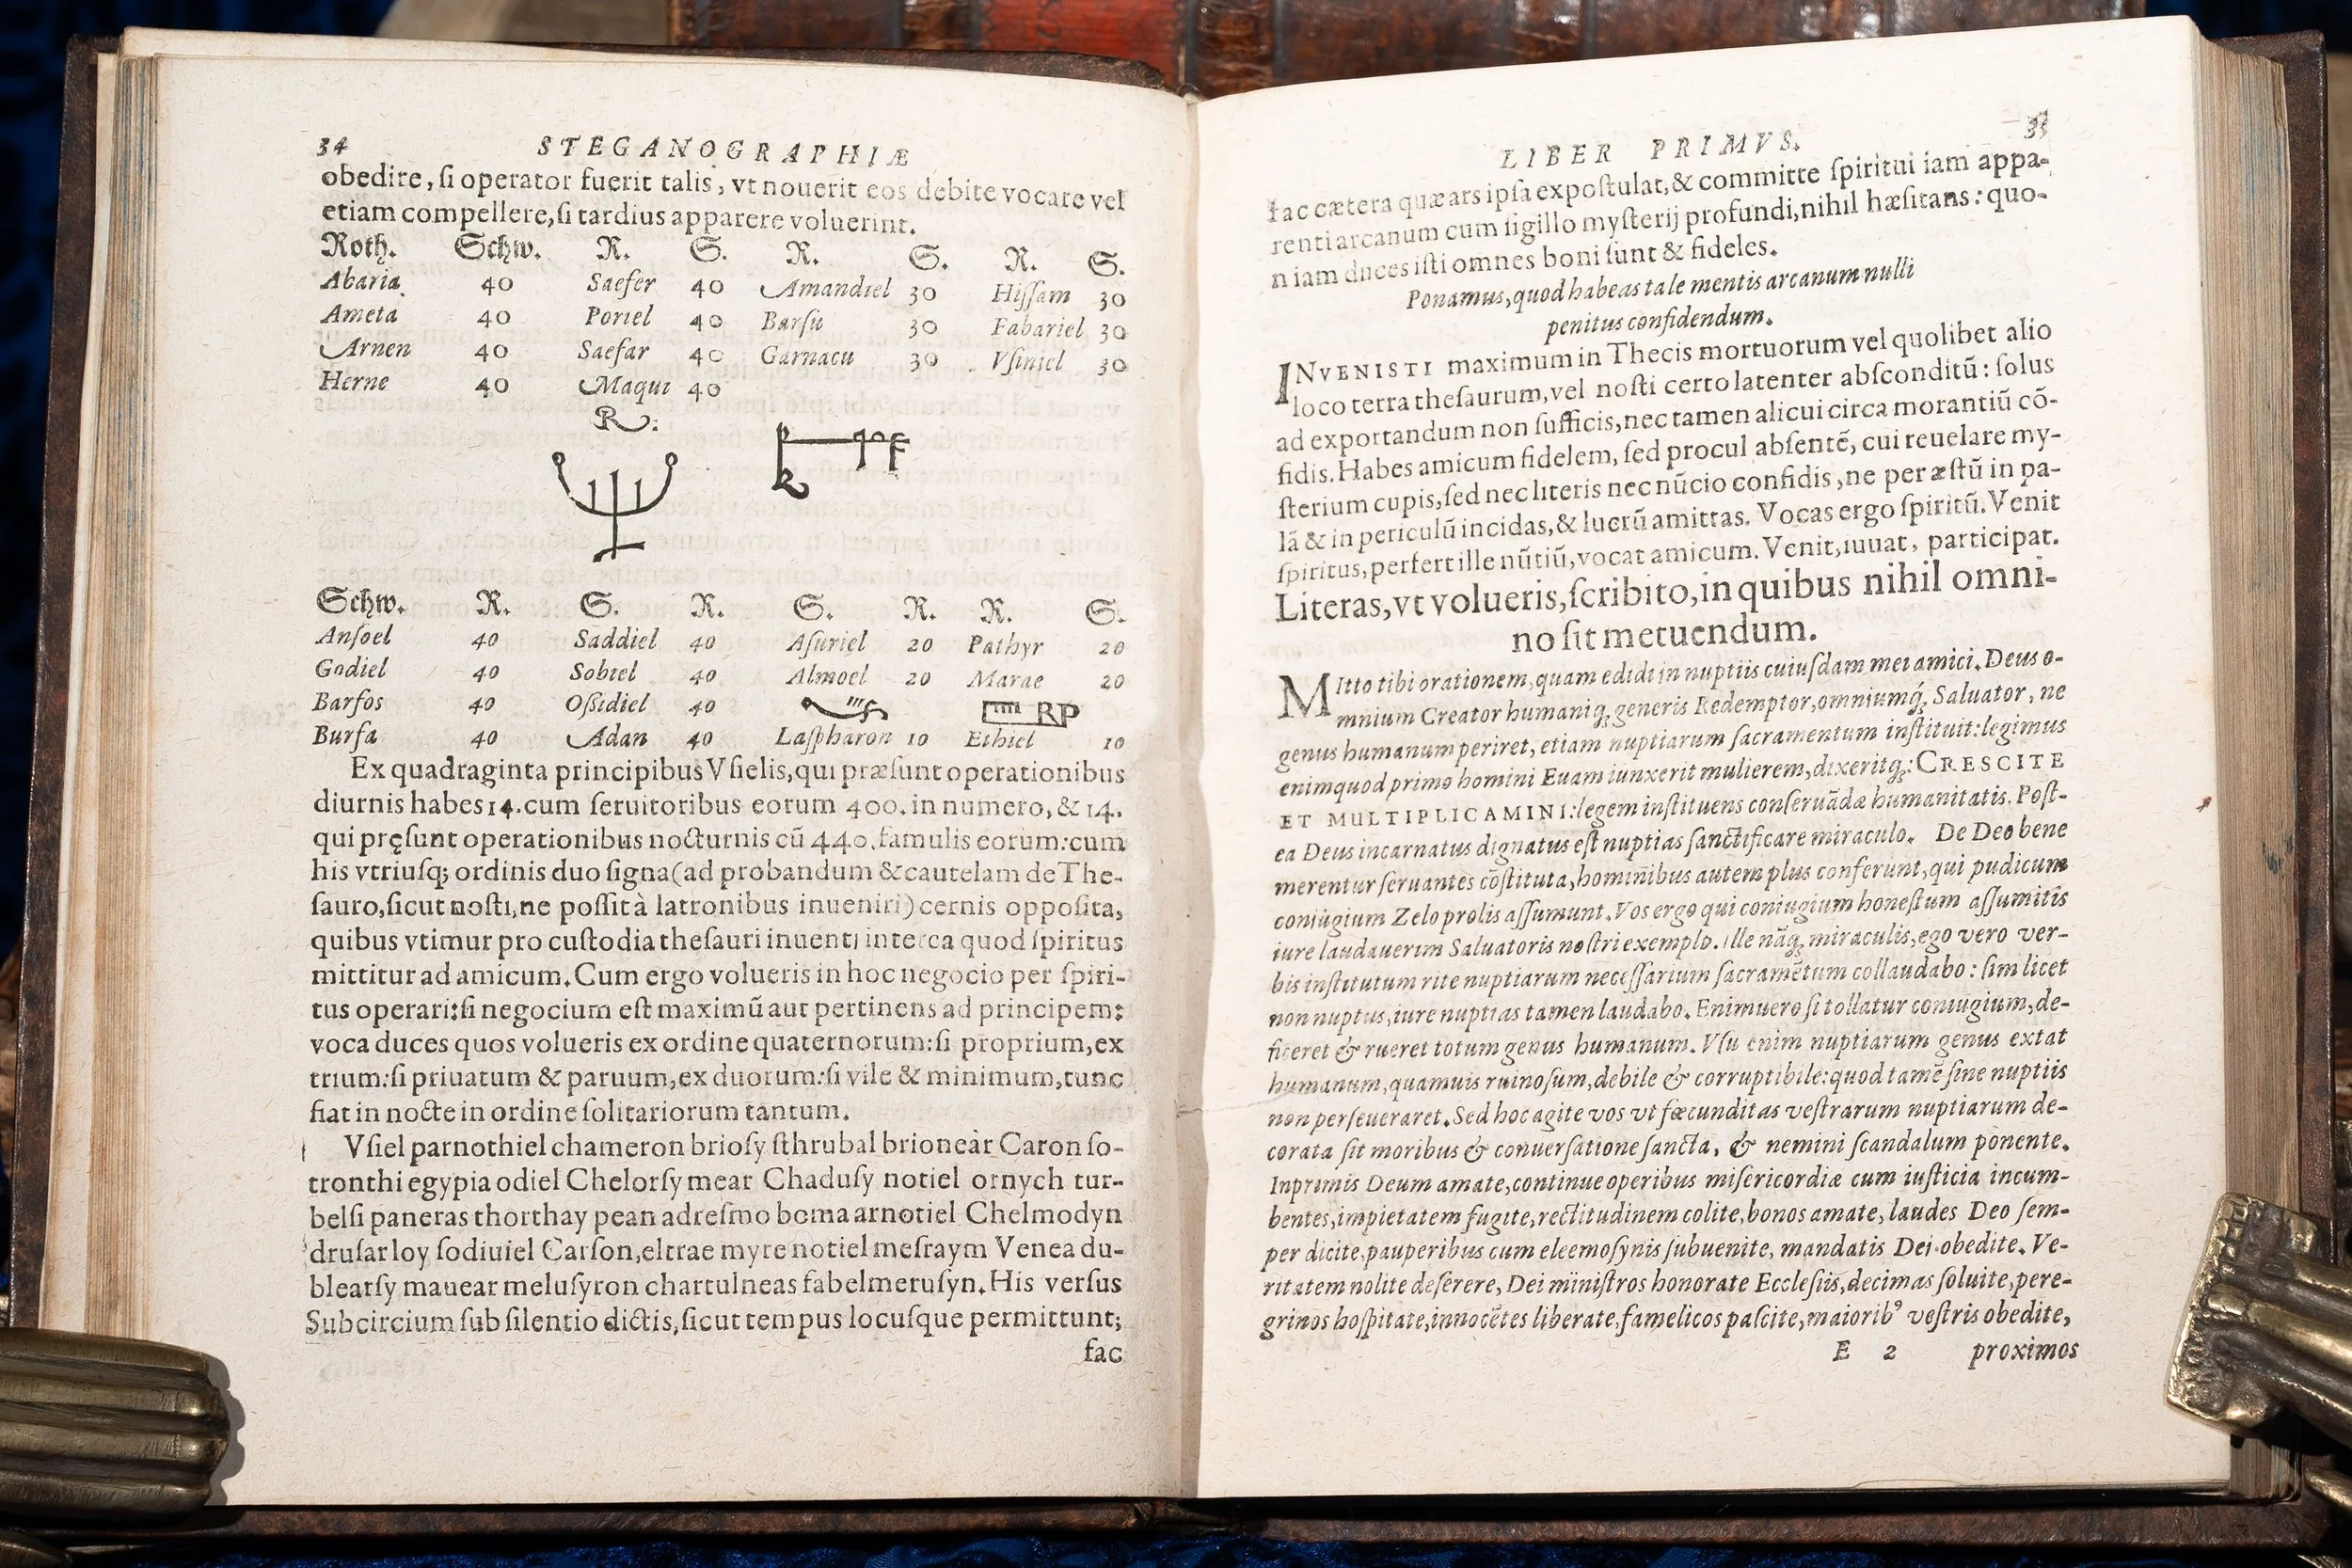 34 STEGANOGRAPHIÆ
obedire, ſi operator fuerit talis, vt nouerit eos debite vocare vel
etiam compellere, ſi tardius apparere voluerint.
Roth. Schw. R. S. R. S. R. S.
Abaria 40 Saefer 40 Amandiel 30 Hiſſam 30
Ameta 40 Poriel 40 Barſu 30 Fabariel 30
Arnen 40 Saefar 40 Garnacu 30 Vſiniel 30
Herne 40 Maqui 40
R:
Schw. R. S. R. S. R. R. S.
Anſoel 40 Saddiel 40 Aſuriel 20 Pathyr 20
Godiel 40 Sobiel 40 Almoel 20 Marae 20
Barfos 40 Oſsidiel 40 RP
Burfa 40 Adan 40 Laſpharon 10 Ethiel 10
Ex quadraginta principibus Vſielis, qui præſunt operationibus
diurnis habes 14. cum ſeruitoribus eorum 400. in numero, & 14.
qui pręſunt operationibus nocturnis cũ 440. famulis eorum: cum
his vtriuſq; ordinis duo ſigna (ad probandum & cautelam de The-
ſauro, ſicut noſti, ne poſſit à latronibus inueniri) cernis oppoſita,
quibus vtimur pro cuſtodia theſauri inuenti interea quod ſpiritus
mittitur ad amicum. Cum ergo volueris in hoc negocio per ſpiri-
tus operari: ſi negocium eſt maximũ aut pertinens ad principem:
voca duces quos volueris ex ordine quaternorum: ſi proprium, ex
trium: ſi priuatum & paruum, ex duorum: ſi vile & minimum, tunc
fiat in nocte in ordine ſolitariorum tantum.
Vſiel parnothiel chameron brioſy ſthrubal brioneàr Caron ſo-
tronthi egypia odiel Chelorſy mear Chaduſy notiel ornych tur-
belſi paneras thorthay pean adreſmo boma arnotiel Chelmodyn
druſarloy ſodiuiel Carſon, eltrae myre notiel meſraym Venea du-
blearſy mauear meluſyron chartulneas fabelmeruſyn. His verſus
Subcircium ſub ſilentio dictis, ſicut tempus locuſque permittunt;
fac
LIBER PRIMVS. 35
fac cætera quæ ars ipſa expoſtulat, & committe ſpiritui iam appa-
renti arcanum cum ſigillo myſterij profundi, nihil hæſitans: quo-
niam duces iſti omnes boni ſunt & fideles.
Ponamus, quod habeas tale mentis arcanum nulli
penitus confidendum.
INVENISTI maximum in Thecis mortuorum vel quolibet alio
loco terra theſaurum, vel noſti certo latenter abſconditũ: ſolus
ad exportandum non ſufficis, nec tamen alicui circa morantiũ cõ-
fidis. Habes amicum fidelem, ſed procul abſentẽ, cui reuelare my-
ſterium cupis, ſed nec literis nec nũcio confidis, ne per æſtũ in pa-
lã & in periculũ incidas, & lucrũ amittas. Vocas ergo ſpiritũ. Venit
ſpiritus, perfert ille nũtiũ, vocat amicum. Venit, iuuat, participat.
Literas, vt volueris, ſcribito, in quibus nihil omni-
no ſit metuendum.
MItto tibi orationem, quam edidi in nuptiis cuiuſdam mei amici. Deus o-
mnium Creator humaniq; generis Redemptor, omniumq́; Saluator, ne
genus humanum periret, etiam nuptiarum ſacramentum inſtituit: legimus
enim quod primo homini Euam iunxerit mulierem, dixeritq;: CRESCITE
ET MULTIPLICAMINI: legem inſtituens conſeruãdæ humanitatis. Poſt-
ea Deus incarnatus dignatus eſt nuptias ſanctificare miraculo. De Deo bene
merentur ſeruantes cõſtituta, hominibus autem plus conferunt, qui pudicum
coniugium Zelo prolis aſſumunt. Vos ergo qui coniugium honeſtum aſſumitis
iure laudauerim Saluatoris noſtri exemplo. Ille nãq; miraculis, ego vero ver-
bis inſtitutum rite nuptiarum neceſſarium ſacramẽtum collaudabo: ſim licet
non nuptus, iure nuptias tamen laudabo. Enimuero ſi tollatur coniugium, de-
ficeret & rueret totum genus humanum. Vſu enim nuptiarum genus extat
humanum, quamuis ruinoſum, debile & corruptibile: quod tamẽ ſine nuptiis
non perſeueraret. Sed hoc agite vos vt fœcunditas veſtrarum nuptiarum de-
corata ſit moribus & conuerſatione ſancta, & nemini ſcandalum ponente.
Inprimis Deum amate, continue operibus miſericordiæ cum iuſticia incum-
bentes, impietatem fugite, rectitudinem colite, bonos amate, laudes Deo ſem-
per dicite, pauperibus cum eleemoſynis ſubuenite, mandatis Dei obedite. Ve-
ritatem nolite deſerere, Dei miniſtros honorate Eccleſiis, decimas ſoluite, pere-
grinos hoſpitate, innocẽtes liberate, famelicos paſcite, maiorib⁹ veſtris obedite,
E 2 proximos